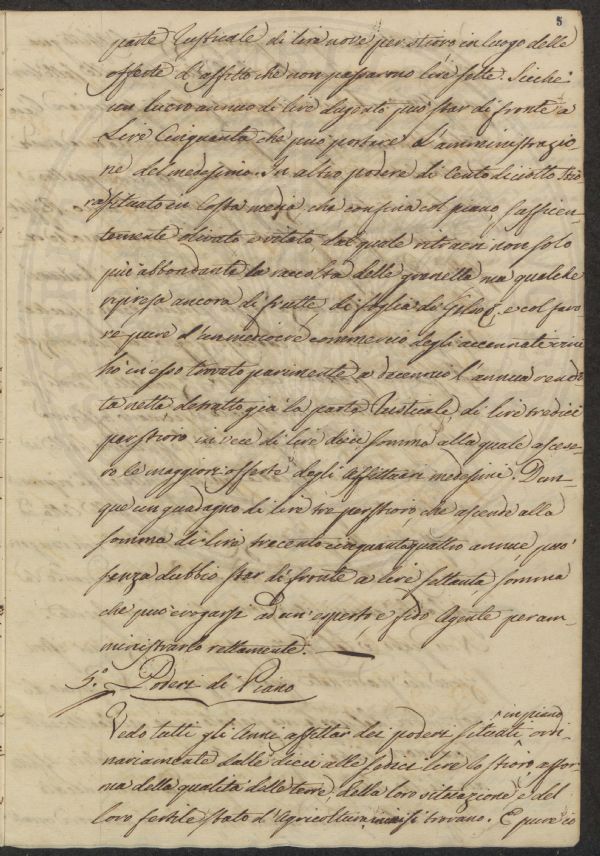 5
parte Rusticale di lire nove per stioro in luogo delle
offerte d'affitto che non passarono lire sette. Sicchè
un lucro annuo di lire dugento può star di fronte a
Lire Cinquanta che può portare l'amministrazio-
ne del medesimo. In altro podere di Cento diciotto stio-
ra situato in Costa media che confina col piano, sufficen-
temente olivato e vitato dal quale ritraesi non solo
più abbondante la raccolta delle granella ma qualche
ripresa ancora di frutte, di foglia di Gelso, e col favo-
re pure d'un mediocre commercio degli accennati
hò in esso trovato parimente a decennio l'annua rendi-
ta netta detratto già la parte Rusticale, di lire tredici
per stioro in vece di lire dieci somma alla quale ascese-
ro le maggiori offerte degli Affittuari medesimi. Dun-
que un guadagno di lire tre per stioro, che ascende alla
somma di lire trecento cinquantaquattro annue, può
senza dubbio star di fronte a lire settanta, somma
che può erogarsi ad un' esperto, e fido Agente per am-
ministrarlo rettamente.
5.° Poderi di Piano
Vedo tutti gli Anni affittar dei poderi situati in piano ordi-
nariamente dalle dieci alle sedici lire lo stioro a for-
ma della qualità delle terre, della loro situazione e del
loro fertile stato d'Agricoltura in cui si trovano. E pure io